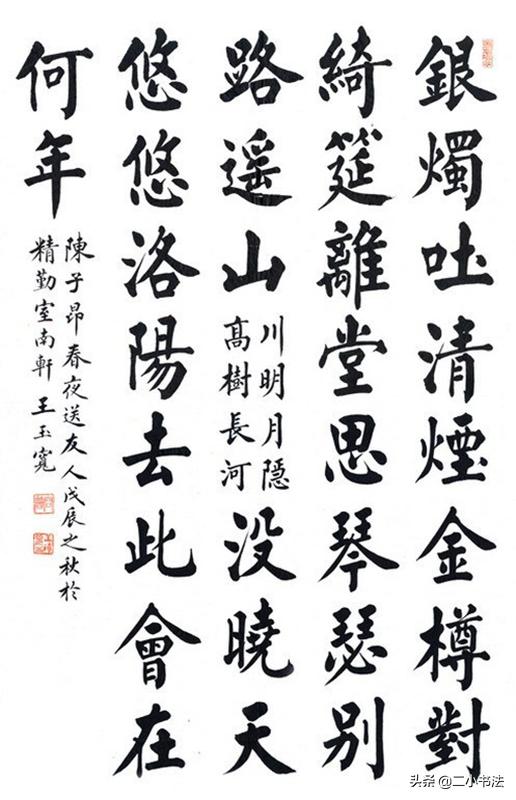 銀燭吐清煙金樽對
綺筵離堂思琴瑟別
路遥山川明月隐髙樹長河没曉天
悠悠洛陽去此會在
何年
陳子昂春夜送友人戊辰之秋於
精勤室南軒王玉寬
头条 @二小书法